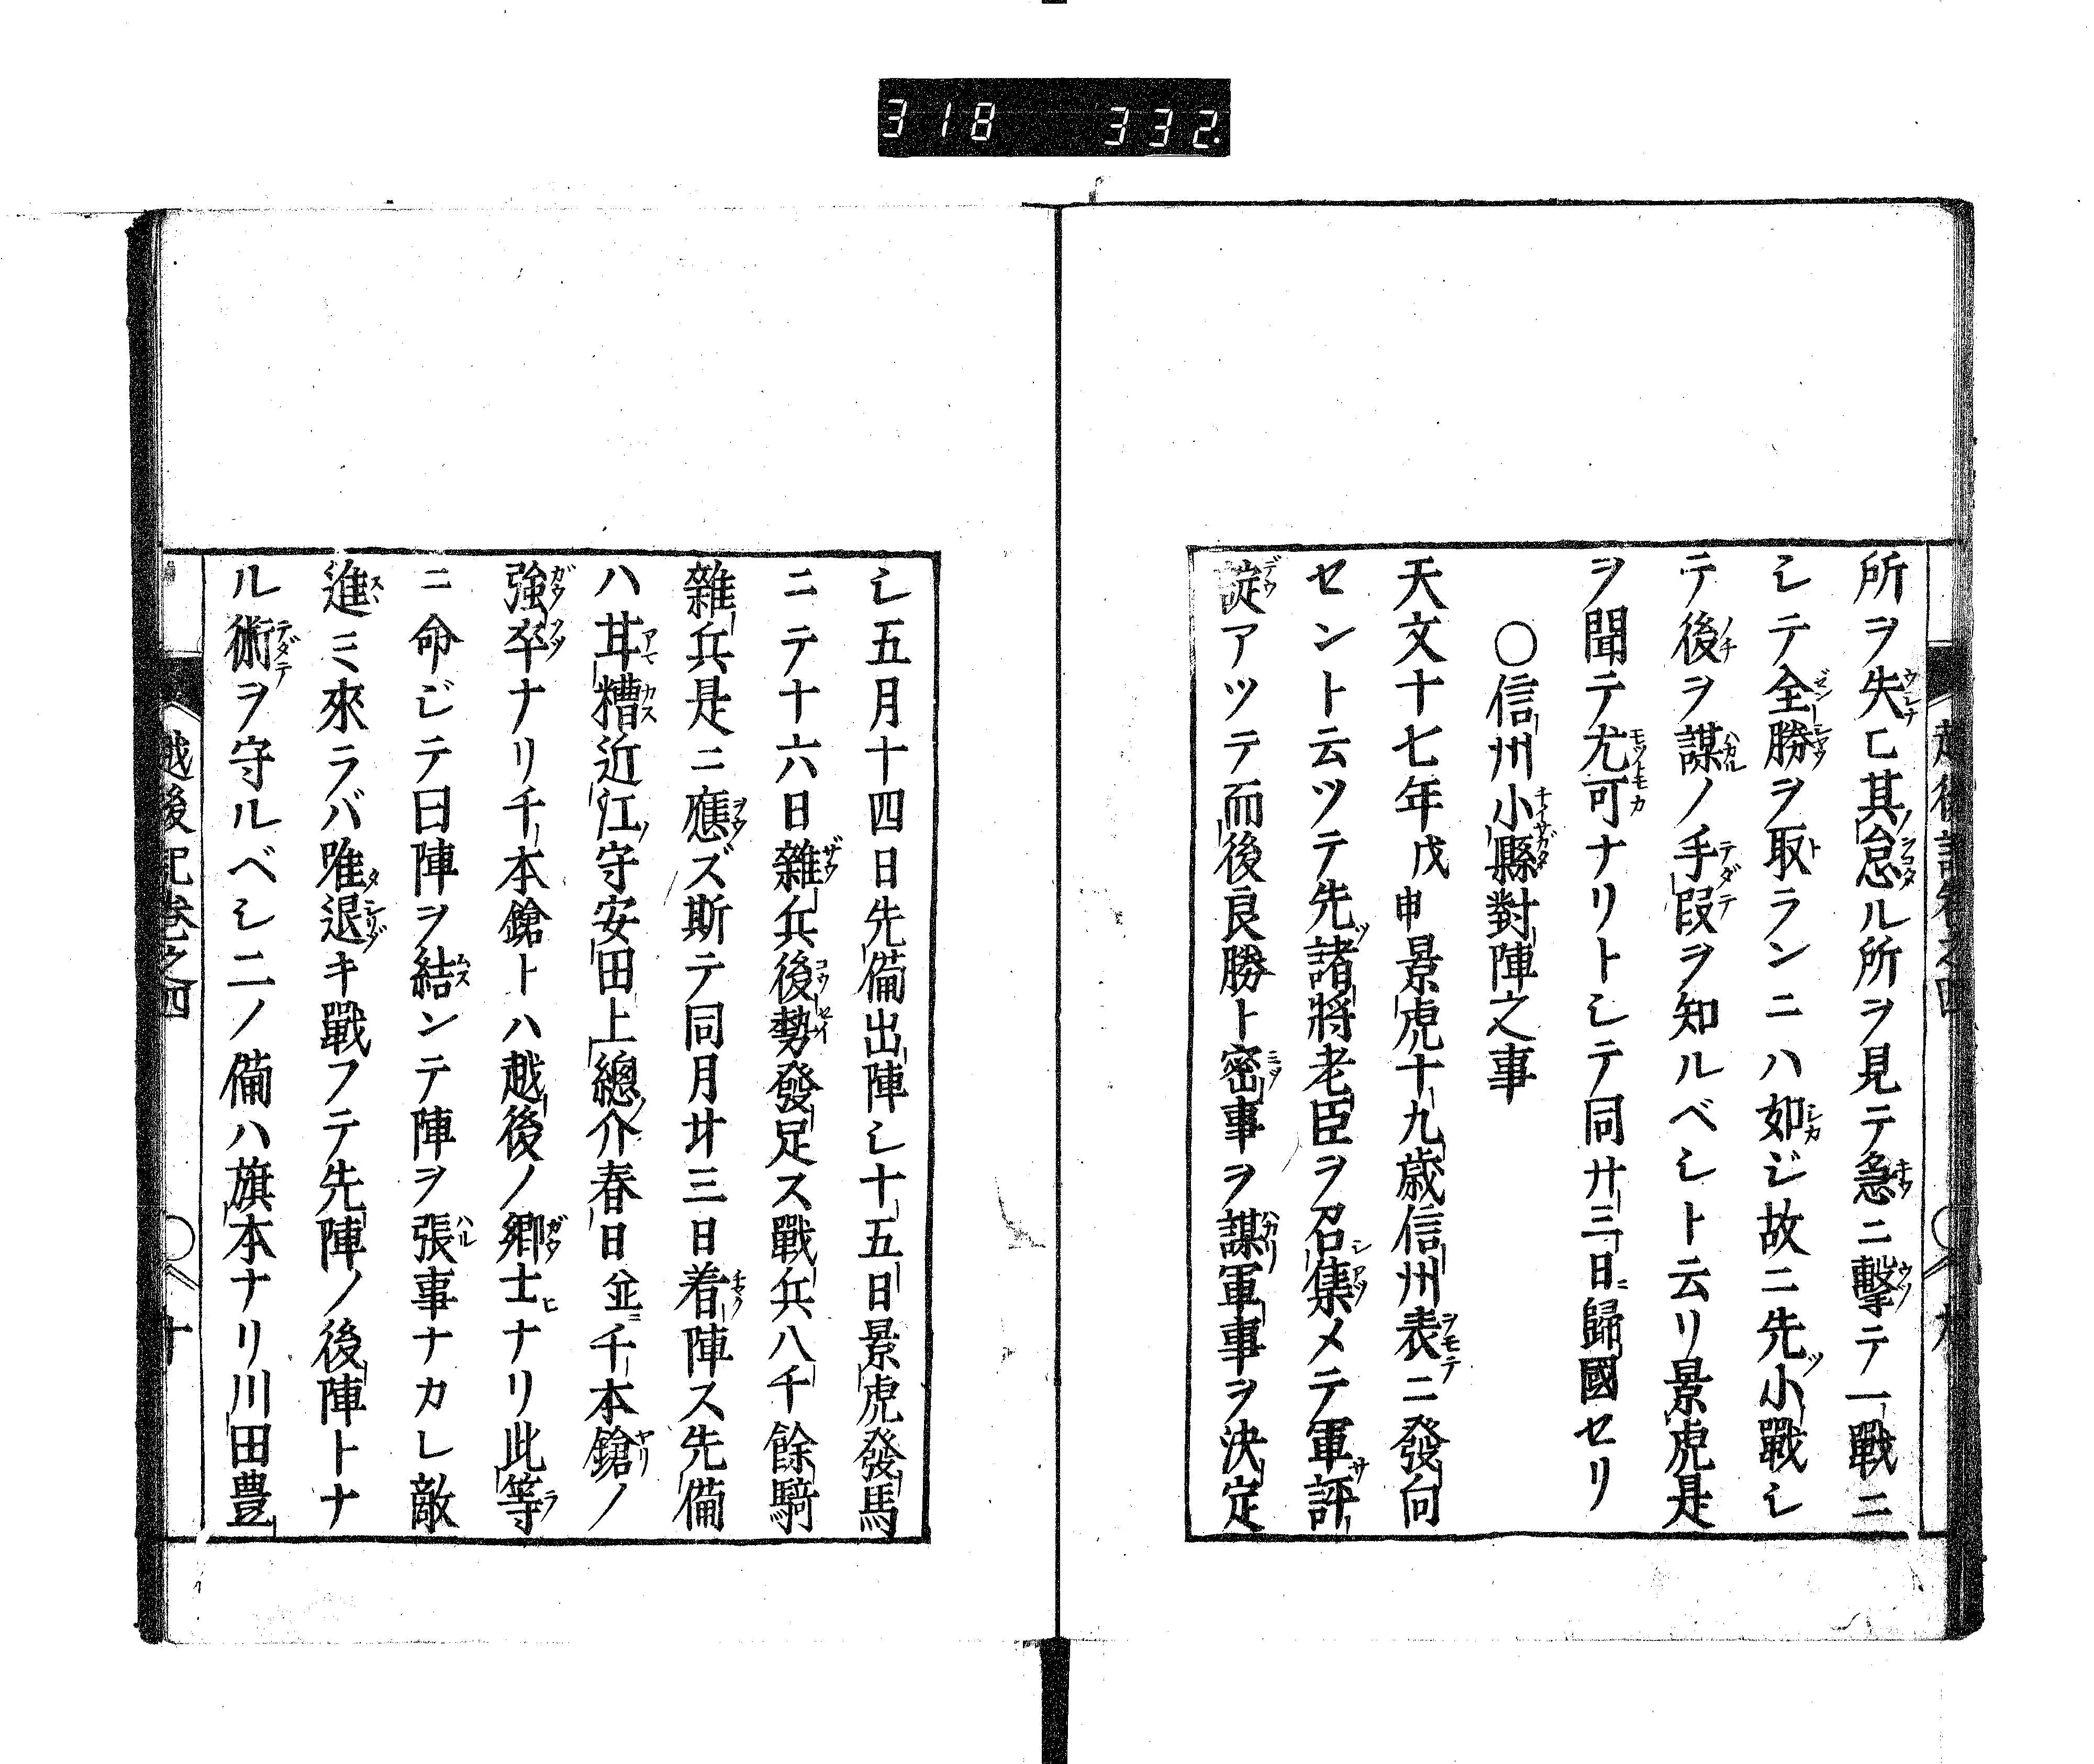 318 332
所ヲ失ヒ其怠ル所ヲ見テ急ニ擊テ一戰ニ
シテ全勝ヲ取ランニハ如ジ故ニ先小戰シ
テ後ヲ謀ノ手段ヲ知ルベシト云リ景虎是
ヲ聞テ尤可ナリトシテ同廿三日歸國セリ
〇信州小縣對陣之事
天文十七年戊申景虎十九歲信州表ニ發向
セント云ツテ先諸將老臣ヲ召集メテ軍評
諚アツテ而後良勝ト密事ヲ謀軍事ヲ決定
シ五月十四日先備出陣シ十五日景虎發馬
ニテ十六日雜兵後勢發足ス戰兵八千餘騎
雜兵是ニ應ズ斯テ同月廿三日着陣ス先備
ハ甘糟近江守安田上總介春日並千本鎗ノ
強卒ナリ千本鎗トハ越後ノ鄉士ナリ此等
ニ命ジテ曰陣ヲ結ンテ陣ヲ張事ナカレ敵
進ミ來ラバ唯退キ戰フテ先陣ノ後陣トナ
ル術ヲ守ルベシ二ノ備ハ旗本ナリ川田豊
越後記卷之四 〇 十